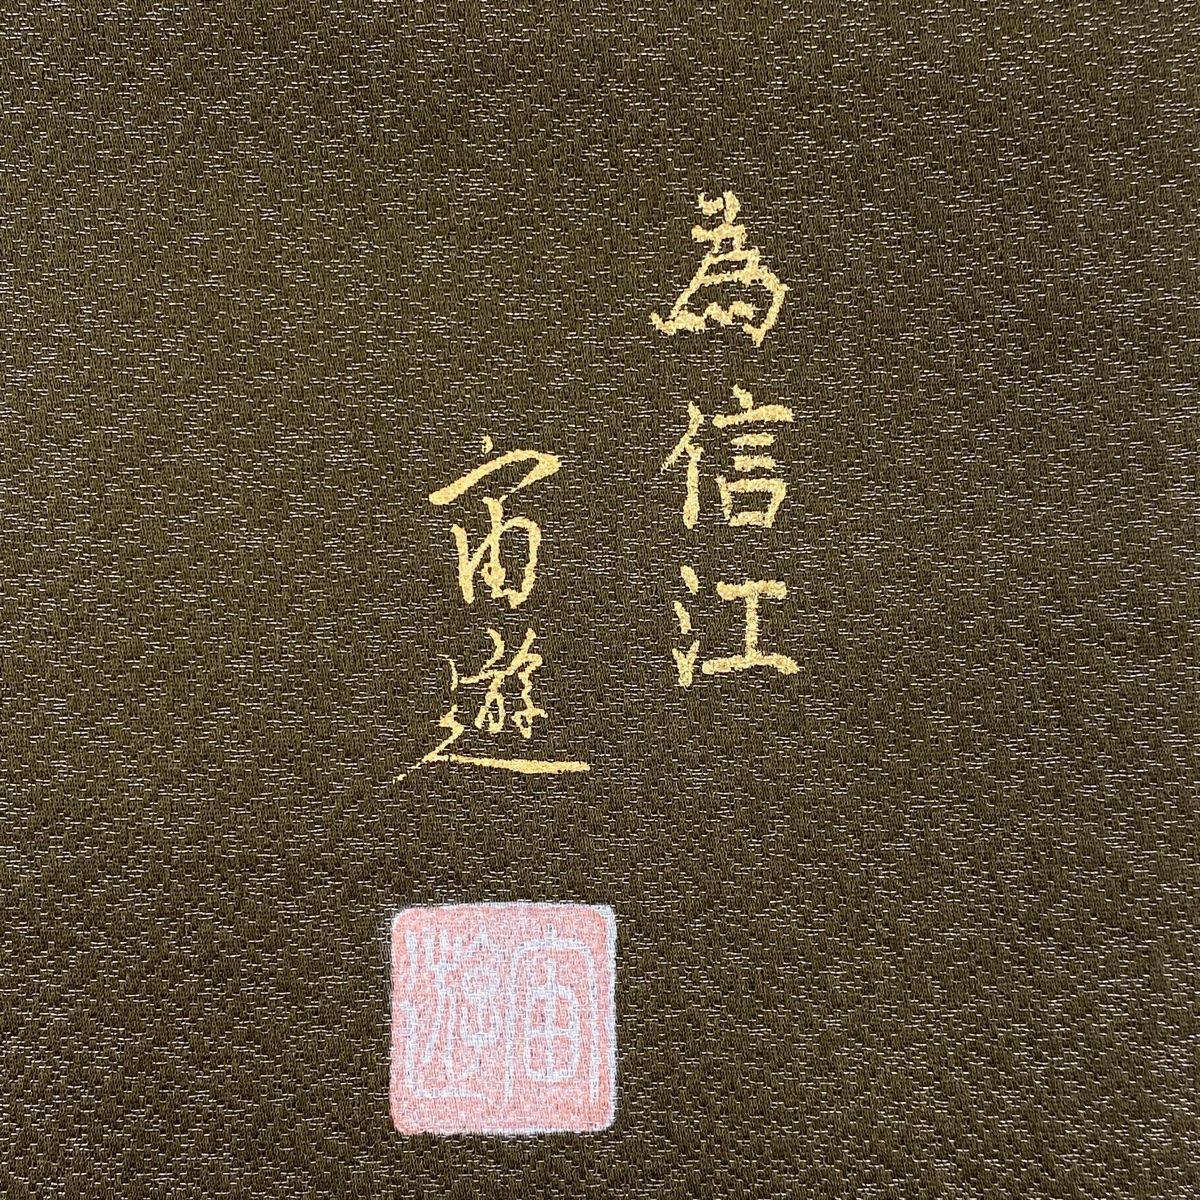 為信江
宙遊
宙遊